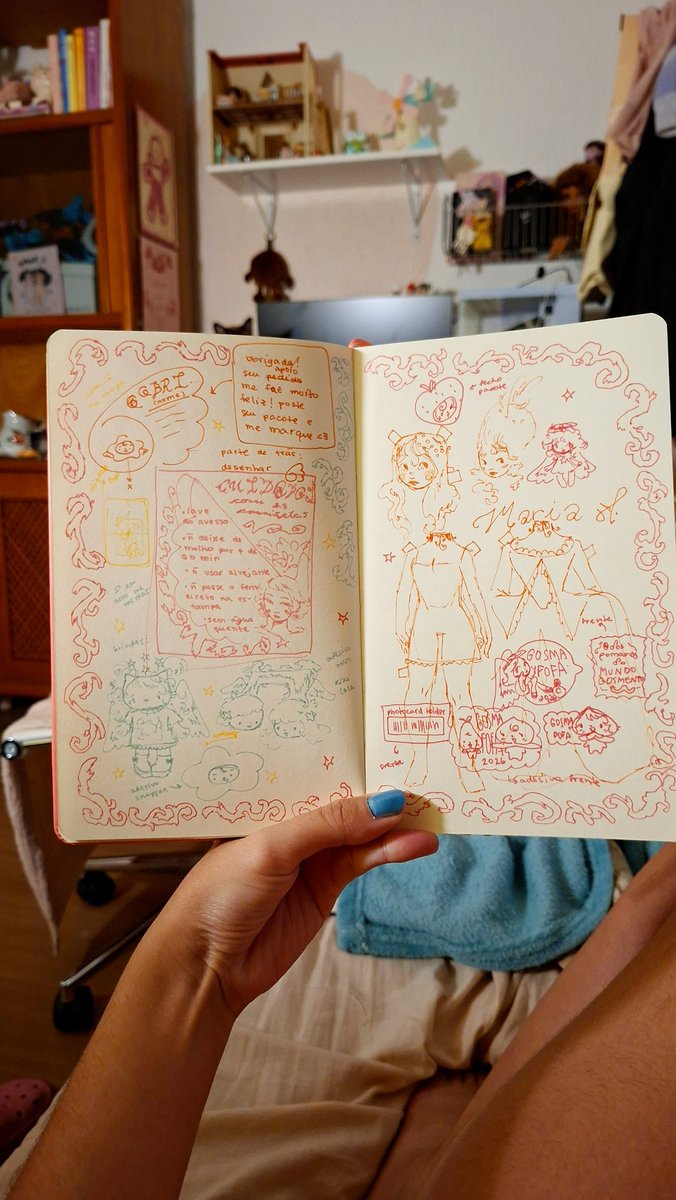 GABRI
(nome)
obrigada!
apoio
seu pedido
me fez muito
feliz! poste
seu pacote e
me marque <3
parte de trás:
desenhar
CUIDADOS
com as
camisetas
• lave
do avesso
• ñ deixe de
molho por + de
min
• ñ usar alvejante
• ñ passe o ferro
direto na es-
tampa
• sem água
quente
brindes:
adesivo
shoppe
adesivo
fecho
pacote
Maria A.
frente
GOSMA
FOFA
Todos
pomares
do
MUNDO
photocard holder
frente
GOSMA
FOFA
2026
GOSMA
FOFA
adesivo frente